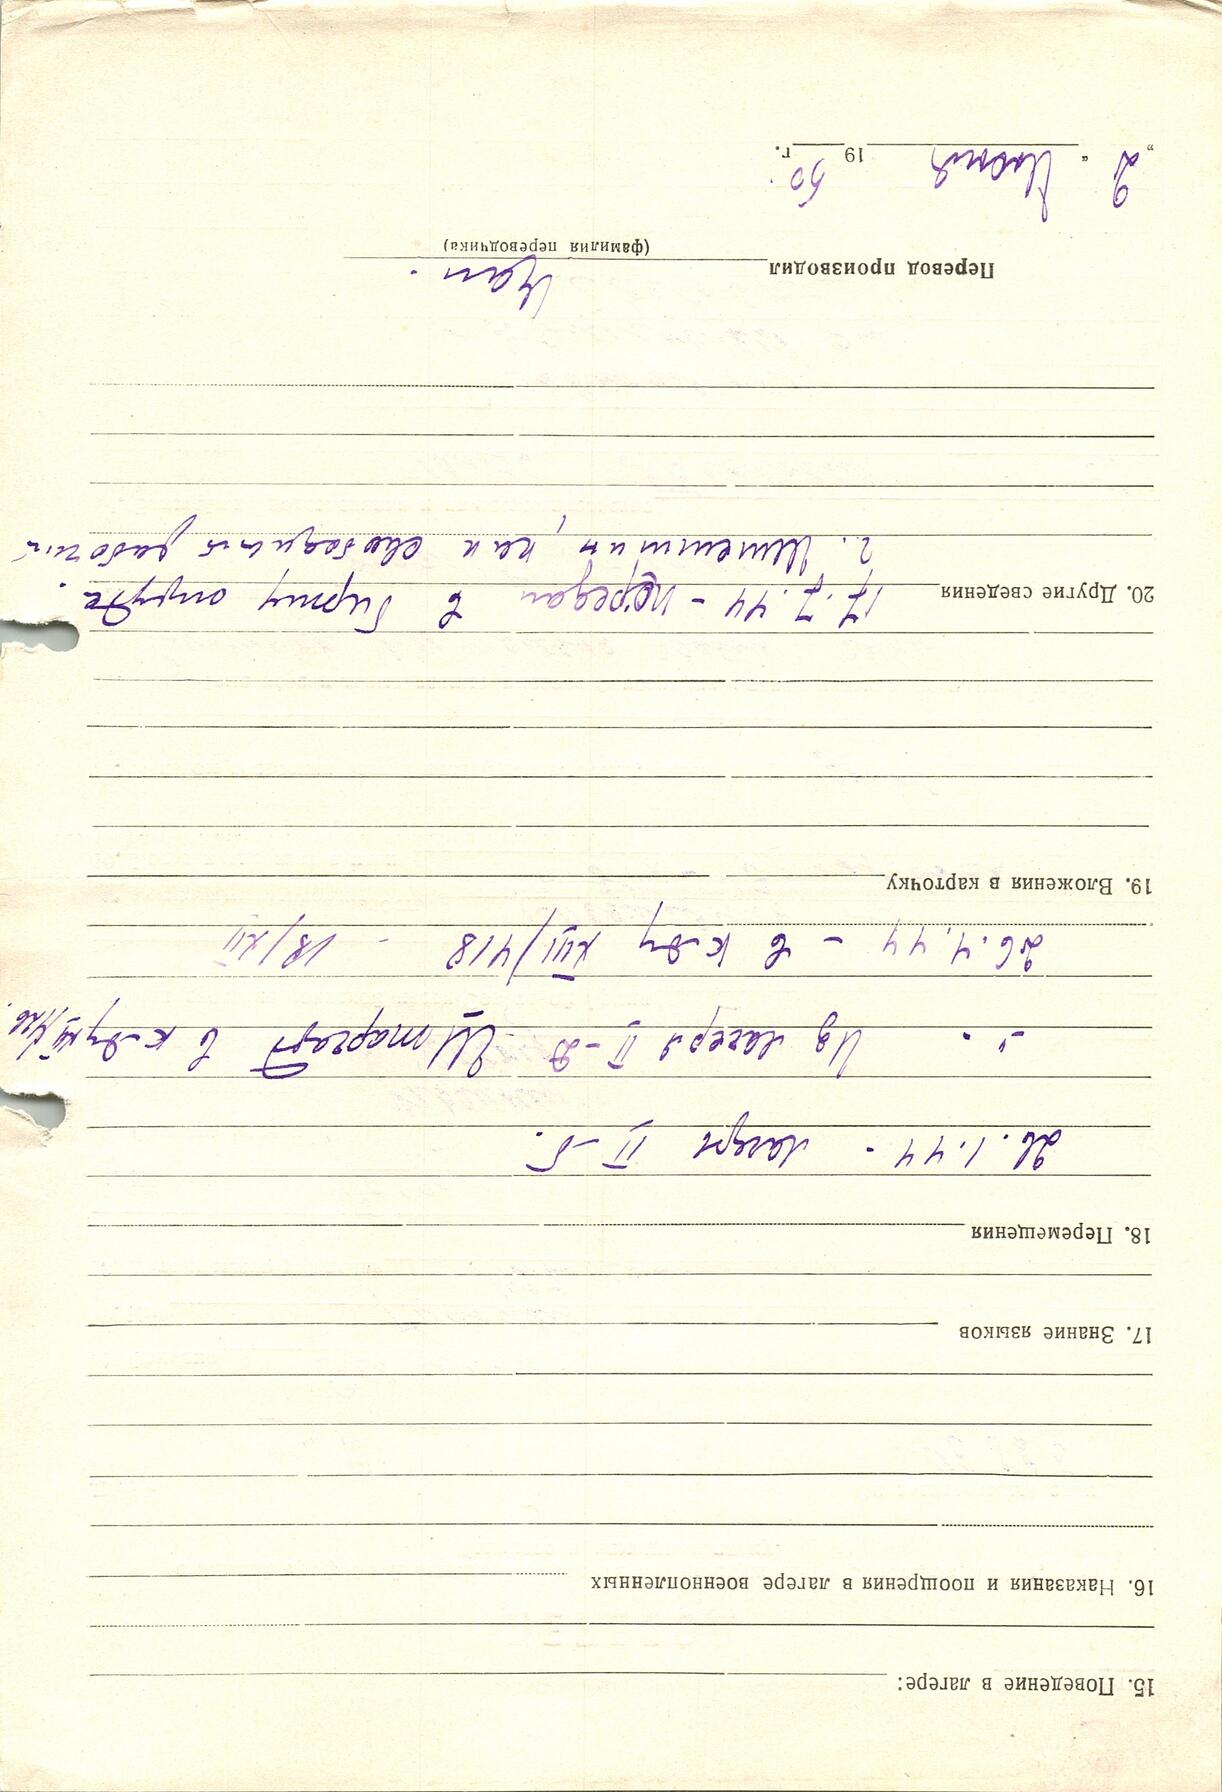 15. Поведение в лагере:
16. Наказания и поощрения в лагере военнопленных
17. Знание языков
18. Перемещения
26.1.44 - лагерь II-Б.
-"- Из лагеря II-Д Штаргард в к-ду XIII/426.
26.4.44 - в к-ду XIII/418 - 18/XII
19. Вложения в карточку
20. Другие сведения 17.7.44 - передан в биржу труда
г. Штеттин, как свободный рабочий.
Перевод производил
(фамилия переводчика)
„2" Июня 1950 г.